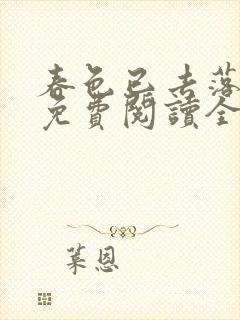 春色已去落
免費閱讀全
葉恩